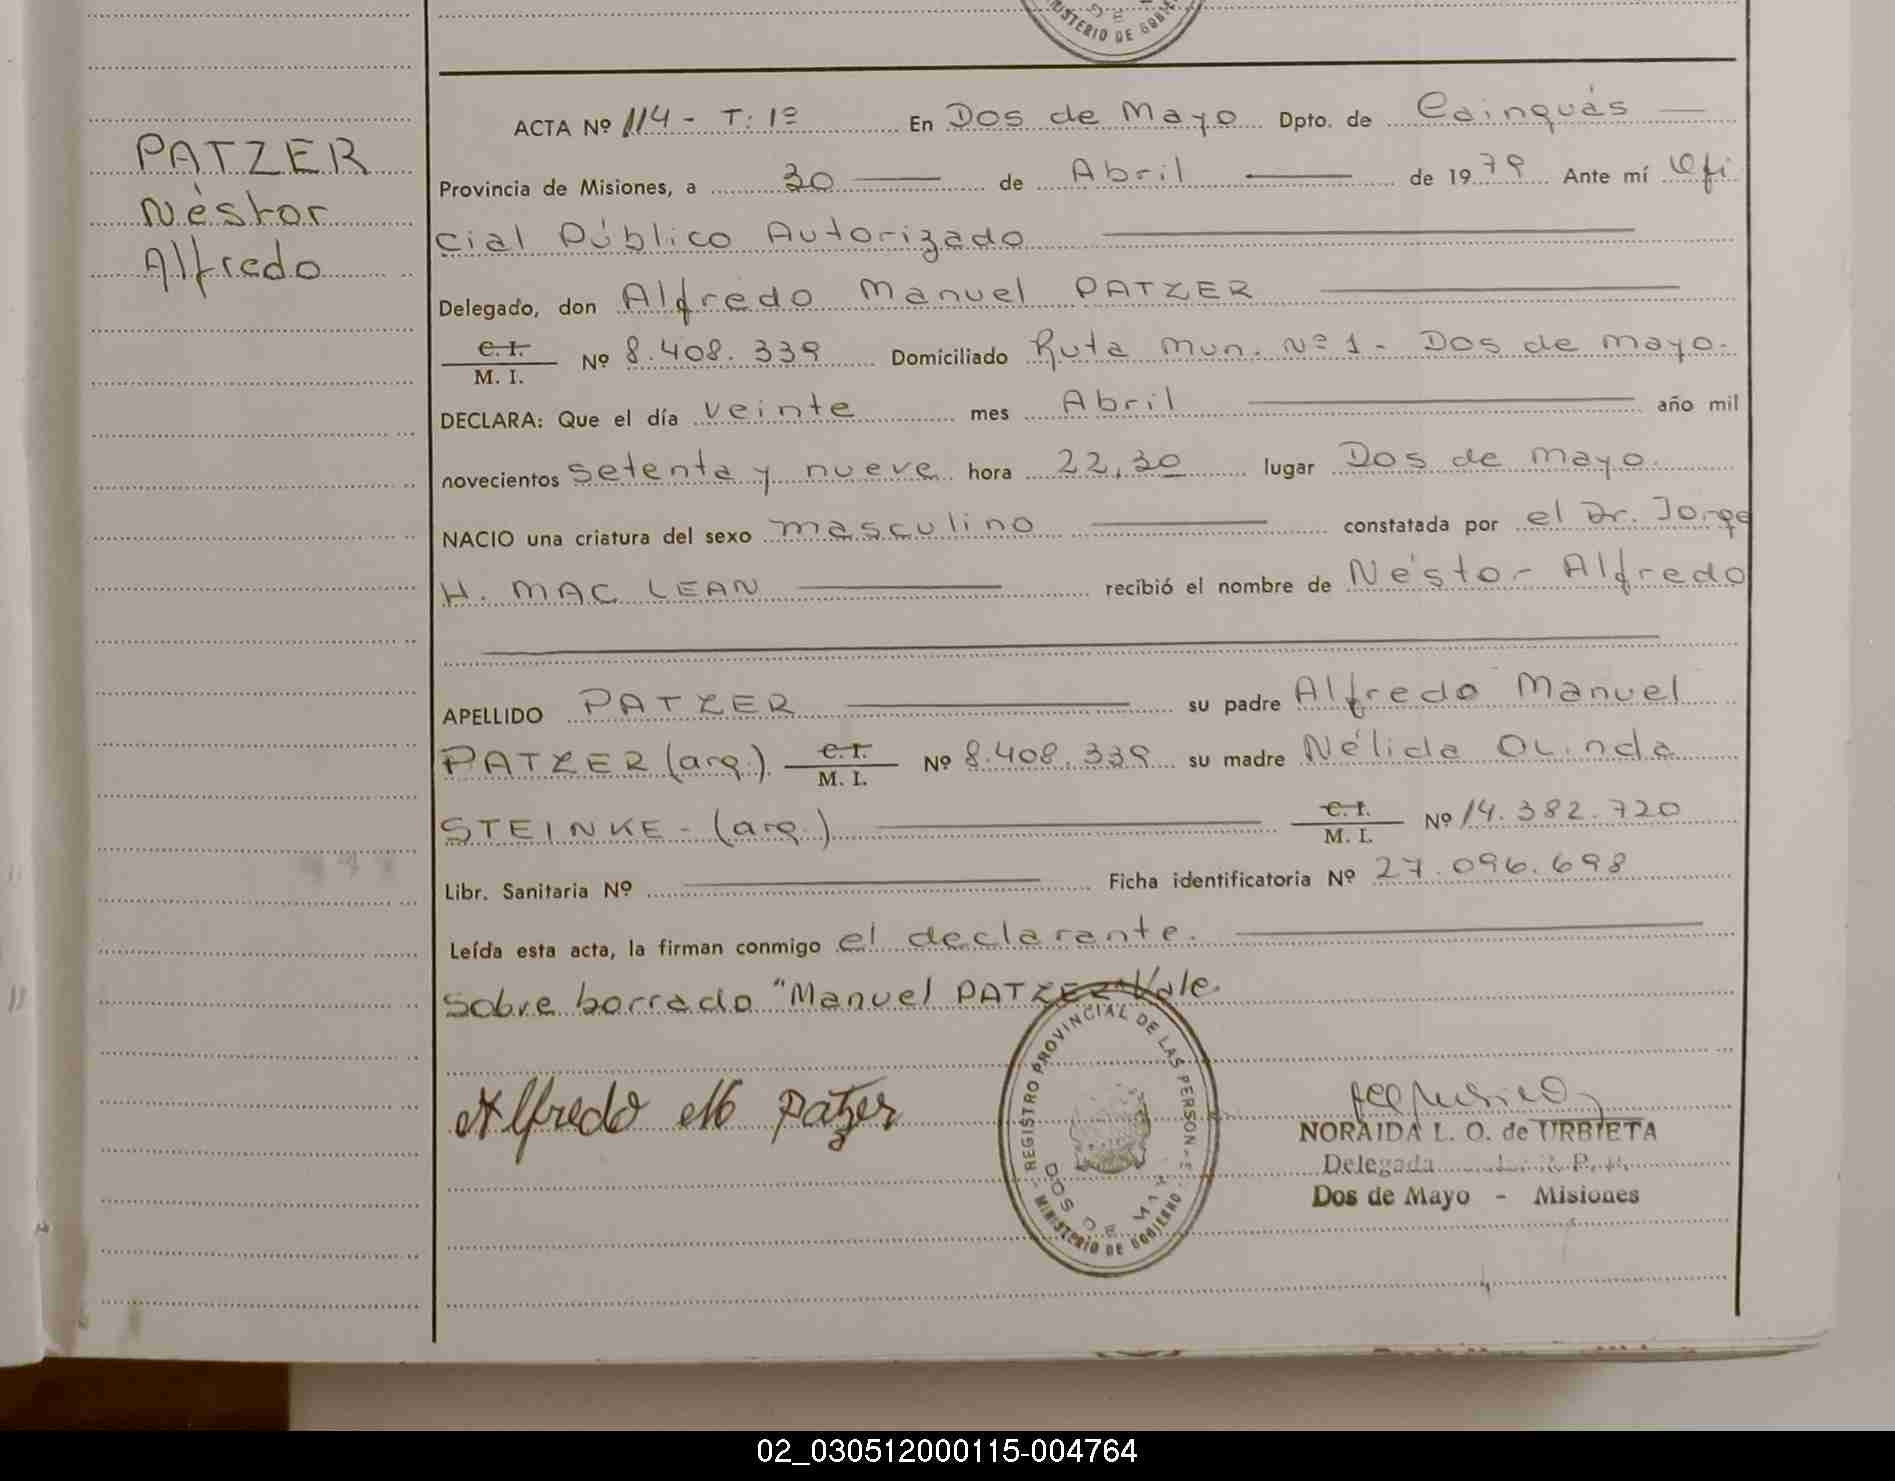 MINISTERIO DE GOBIE
DE
PATZER
Néstor
Alfredo
ACTA Nº 114 - T: 1º En Dos de Mayo Dpto. de Cainguás
Provincia de Misiones, a 30 de Abril de 1979 Ante mí Ofi
cial Público Autorizado
Delegado, don Alfredo Manuel PATZER
C. I.
M. I. Nº 8.408.339 Domiciliado Ruta Mun. Nº 1 - Dos de Mayo.
DECLARA: Que el día veinte mes Abril año mil
novecientos setenta y nueve hora 22,30 lugar Dos de Mayo.
NACIO una criatura del sexo masculino constatada por el Dr. Jorge
H. MAC LEAN recibió el nombre de Néstor Alfredo
APELLIDO PATZER su padre Alfredo Manuel
PATZER (arg.) C. I. M. I. Nº 8.408.339 su madre Nélida OLinda
STEINKE - (arg.) C. I. M. I. Nº 14.382.720
Libr. Sanitaria Nº Ficha identificatoria Nº 27.096.698
Leída esta acta, la firman conmigo el declarante.
Sobre borrado "Manuel PATZER" Vale.
Alfredo M Patzer
REGISTRO PROVINCIAL DE LAS PERSONAS
DOS DE MAY
- MINISTERIO DE GOBIERNO -
NORAIDA L. O. de URBIETA
Delegada
Dos de Mayo - Misiones
02_030512000115-004764